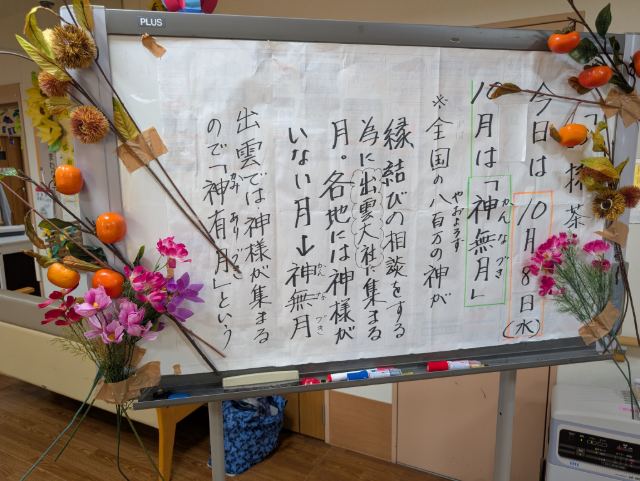 PLUS
抹茶
今日は10月8日(水)
10月は「神無月」
かんなづき
※全国の八百万の神が
やおよろず
縁結びの相談をする
為に出雲大社に集まる
月。各地には神様が
いない月→神無月
かんなづき
出雲では神様が集まる
ので「神有月」という
かみありづき